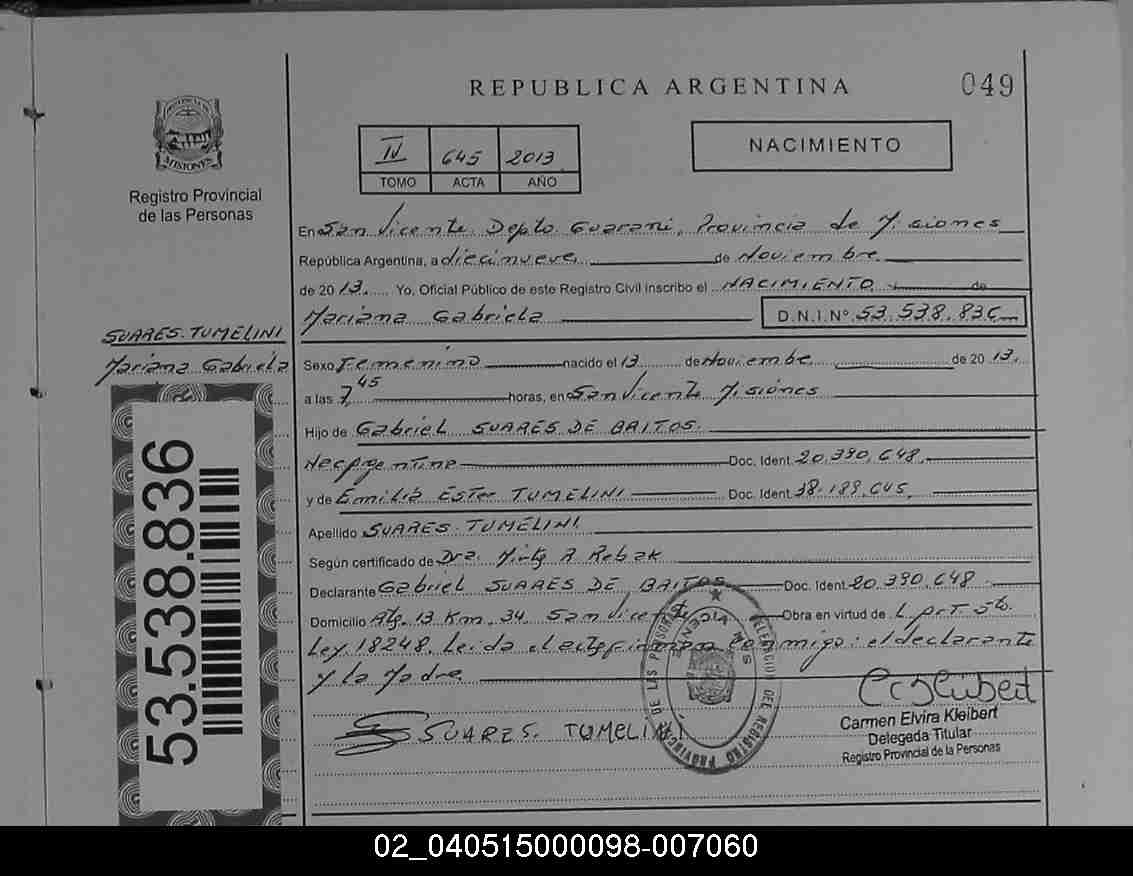 REPUBLICA ARGENTINA
049
PROVINCIA DE MISIONES
Registro Provincial
de las Personas
IV 645 2013
TOMO ACTA AÑO
NACIMIENTO
En San Vicente Depto. Guarani, Provincia de Misiones
República Argentina, a diecinueve de Noviembre
de 2013. Yo, Oficial Público de este Registro Civil inscribo el NACIMIENTO de
Mariana Gabriela D.N.I.Nº 53.538.836
SUARES TUMELINI
Mariana Gabriela
Sexo Femenino nacido el 13 de Noviembre de 2013.
a las 7,45 horas, en San Vicente Misiones
Hijo de Gabriel SUARES DE BRITOS.
Nac. Argentino Doc. Ident. 20.390.648.
y de Emilia Ester TUMELINI Doc. Ident. 38.189.645.
Apellido SUARES TUMELINI
Según certificado de Dra. Mirta R. Rebak
Declarante Gabriel SUARES DE BRITOS Doc. Ident. 20.390.648
Domicilio Km. 34. San Vicente Obra en virtud de L Art. 5to.
Ley 18248. Leida el acta firman conmigo: el declarante
y la Madre
SUARES. TUMELINI
Carmen Elvira Kleibert
Delegada Titular
Registro Provincial de la Personas
DELEGACION DEL REGISTRO PROVINCIAL DE LAS PERSONAS
SAN VICENTE
53.538.836
02_040515000098-007060